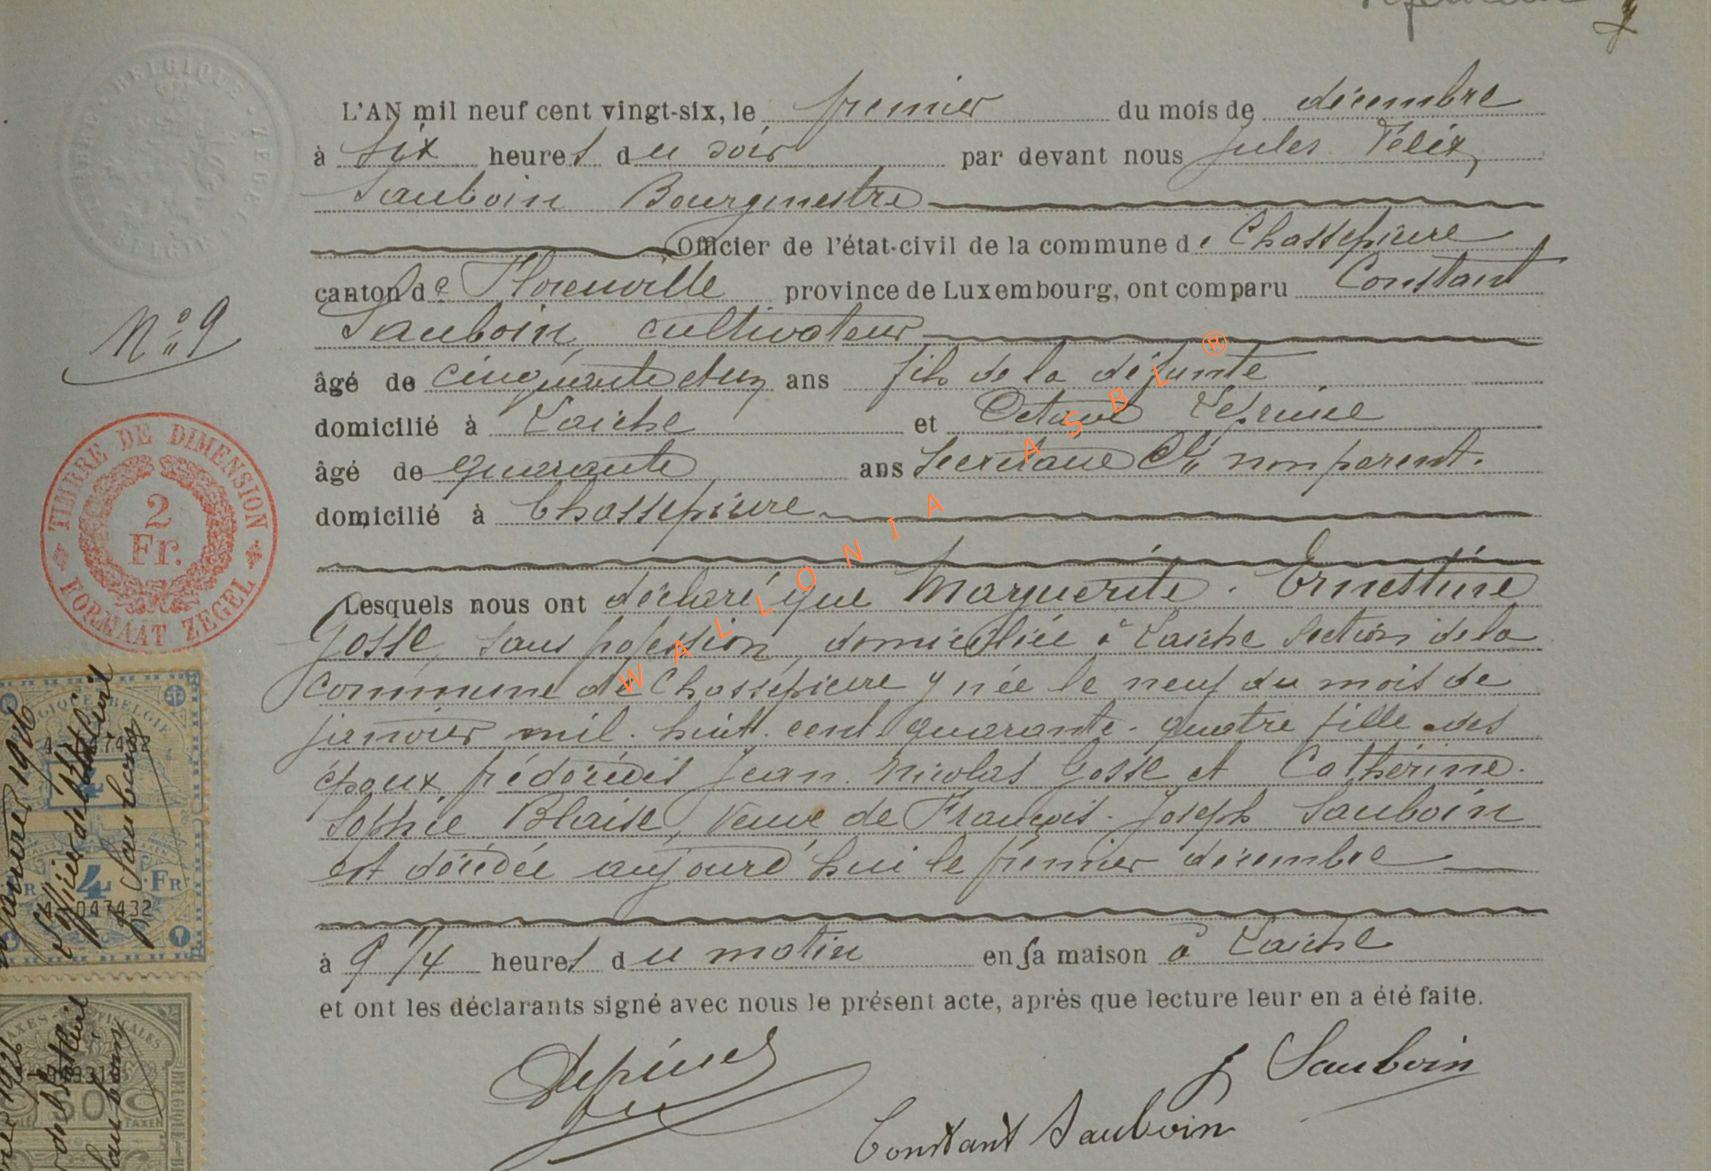 L'AN mil neuf cent vingt-six, le premier du mois de décembre
à six heures du soir par devant nous Jules Félix
Sauboin Bourgmestre
Officier de l'état-civil de la commune de Chassepierre
canton de Florenville province de Luxembourg, ont comparu Constant
Sauboin, cultivateur
âgé de cinquante et un ans fils de la défunte
domicilié à Laiche et Octave Lepine
âgé de quarante ans Secrétaire Cal non parent.
domicilié à Chassepierre
Lesquels nous ont déclaré que Marguerite - Ernestine
Gosse, sans profession, domiciliée à Laiche section de la
commune de Chassepierre y née le neuf du mois de
janvier mil. huit. cent. quarante - quatre fille des
époux prédécédés Jean. Nicolas Gosse et Cathérine.
Sophie Blaise, Veuve de François - Joseph Sauboin
est décédée aujourd'hui le premier décembre
à 9 1/4 heures du matin en sa maison à Laiche
et ont les déclarants signé avec nous le présent acte, après que lecture leur en a été faite.
Lepine
J Sauboin
Constant Sauboin
N° 9
BELGIQUE
BELGIË
TIMBRE DE DIMENSION
2
Fr.
FORMAAT ZEGEL
4 FR
047432
janvier 1926
Officier de l'Etat Civil
Sauboin
WALLONIA ASBL ®